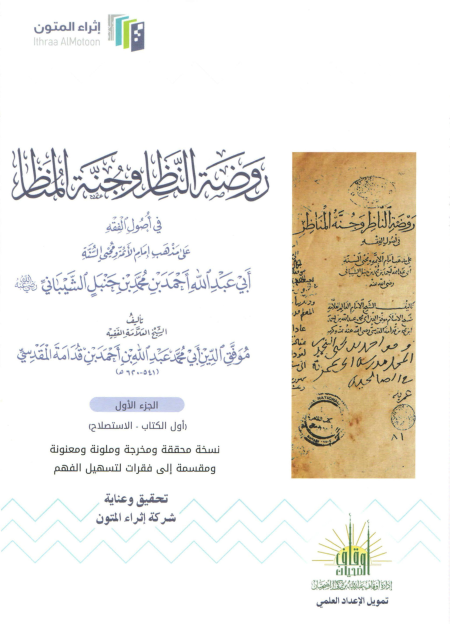 إثراء المتون
Ithraa AlMotoon
روضة الناظر وجنة المناظر
في أصول الفقه
على مذهب إمام الأئمة ومحيي السنة
أبي عبد الله أحمد بن محمد بن حنبل الشيباني
تأليف
الشيخ العلامة الفقيه
موفق الدين أبي محمد عبد الله بن أحمد بن قدامة المقدسي
(٥٤١-٦٢٠هـ)
الجزء الأول
(أول الكتاب - الاستصلاح)
نسخة محققة ومخرجة وملونة ومعنونة
ومقسمة إلى فقرات لتسهيل الفهم
تحقيق وعناية
شركة إثراء المتون
روضة الناظر وجنة المناظر
في أصول الفقه
٨١
أوقاف
الضحيان
تمويل الإعداد العلمي